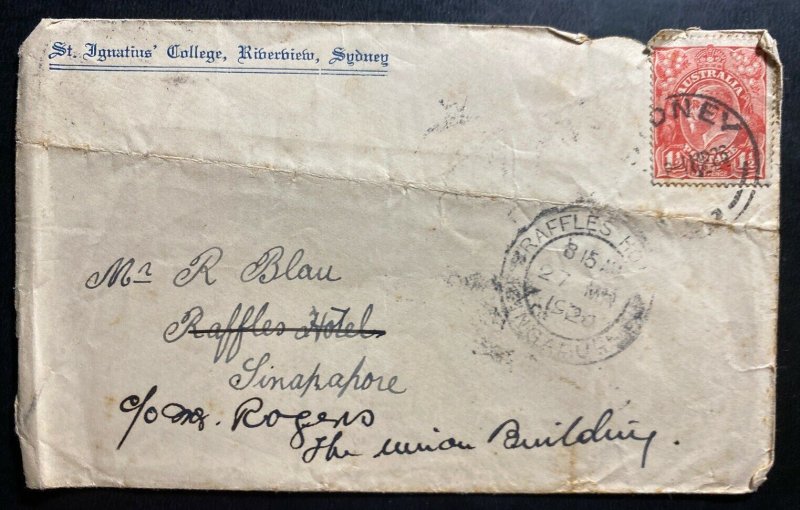 St. Ignatius' College, Riverview, Sydney
AUSTRALIA
DNEY
RAFFLES HO
8 15 A
27 MR
192
NGAPORE
Mr R Blau
Raffles Hotel
Sinapapore
c/o Mr. Rogers
The Union Building.